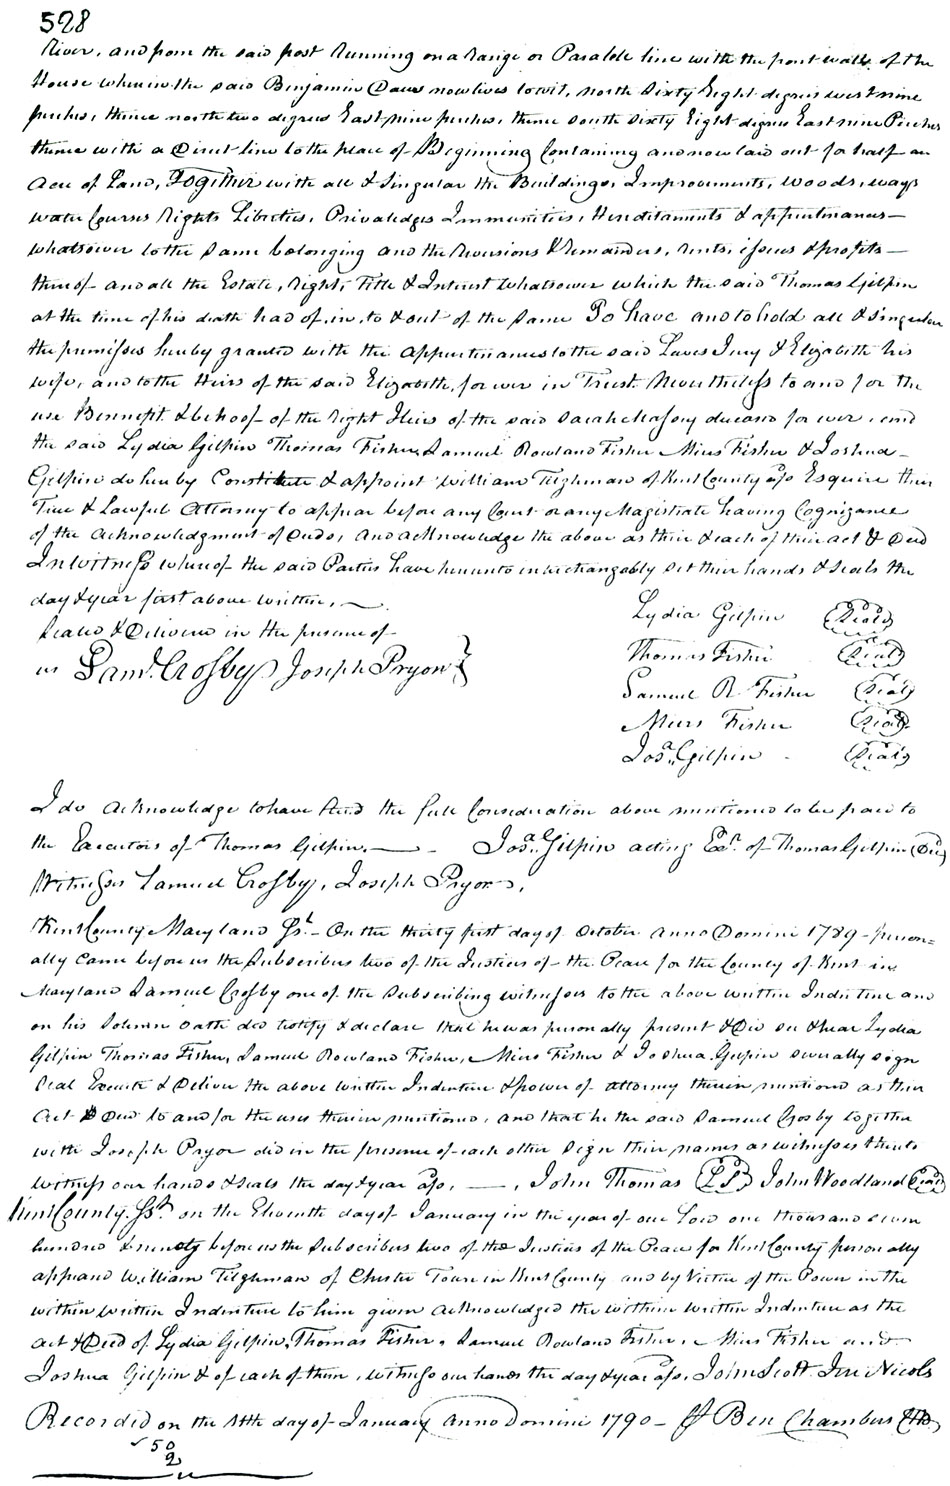 528
River, and from the said post Running on a Range or Paralele line with the front wall of the
House wherein the said Benjamin Daws now lives towit, North Sixty Eight degrees west nine
perches, thence north two degrees East nine perches, thence South Sixty Eight degrees East nine Perches
thence with a Direct line to the place of Beginning Containing and now laid out for half an
Acre of Land, Together with all & Singular the Buildings, Improvements, Woods, ways
water Courses Rights Liberties, Priviledges Immunities, Hereditaments & appurtenances —
whatsoever to the Same belonging and the Reversions & Remainders, rents, issues & profits —
thereof and all the Estate, Right, Title & Interest whatsoever which the said Thomas Gilpin
at the time of his death had of, in, to & out of the Same To have and to hold all & Singular
the premises hereby granted with the appurtenances to the said & Elizabeth his
wife, and to the Heirs of the said Elizabeth, for ever in Trust Nevertheless to and for the
use Bennefit & behoof of the right Heirs of the said Sarah Massey deceased for ever, and
the said Lydia Gilpin Thomas Fisher, Samuel Rowland Fisher Miers Fisher & Joshua
Gilpin do hereby Constitute & appoint William Tilghman of Kent County afs Esquire their
True & Lawful Attorney to appear before any Court or any Magistrate having Cognizance
of the Acknowledgment of Deeds, and acknowledge the above as their & each of their act & Deed
In witness whereof the said Parties have hereunto interchangably set their hands & Seals the
day & year first above written, —
Sealed & Delivered in the presence of
us Saml. Crosby Joseph Pryor }
Lydia Gilpin (Seal)
Thomas Fisher (Seal)
Samuel R. Fisher (Seal)
Miers Fisher (Seal)
Josa. Gilpin (Seal)
I do acknowledge to have Recd the full Consideration above mentioned to be paid to
the Executors of Thomas Gilpin. — Josa. Gilpin acting Exr. of Thomas Gilpin
Witnesses Samuel Crosby, Joseph Pryor,
Kent County Maryland Sst. On the thirty first day of October Anno Domini 1789 person=
ally came before us the Subscribers two of the Justices of the Peace for the County of Kent in
Maryland Samuel Crosby one of the Subscribing witnesses to the above written Indenture and
on his Solemn Oath did testify & declare that he was personally present & Did see & hear Lydia
Gilpin Thomas Fisher, Samuel Rowland Fisher, Miers Fisher & Joshua Gilpin severally sign
Seal Execute & Deliver the above written Indenture & power of attorney therein mentioned as their
Act & Deed to and for the uses therein mentioned, and that he the said Samuel Crosby together
with Joseph Pryor did in the presence of each other Sign their names as witnesses thereto
witness our hands & Seals the day & year afs. —, John Thomas (LS) John Woodland (Seal)
Kent County Sst. on the Eleventh day of January in the year of our Lord one thousand seven
hundred & ninety before us the Subscribers two of the Justices of the Peace for Kent County personally
appeared William Tilghman of Chester Town in Kent County and by Virtue of the Power in the
within written Indenture to him given acknowledged the within written Indenture as the
act & Deed of Lydia Gilpin, Thomas Fisher, Samuel Rowland Fisher, Miers Fisher and
Joshua Gilpin & of each of them, witness our hands the day & year afs, John Scott Jere Nicols
Recorded on the 11th day of January Anno Domini 1790 — Ben Chambers
50
2